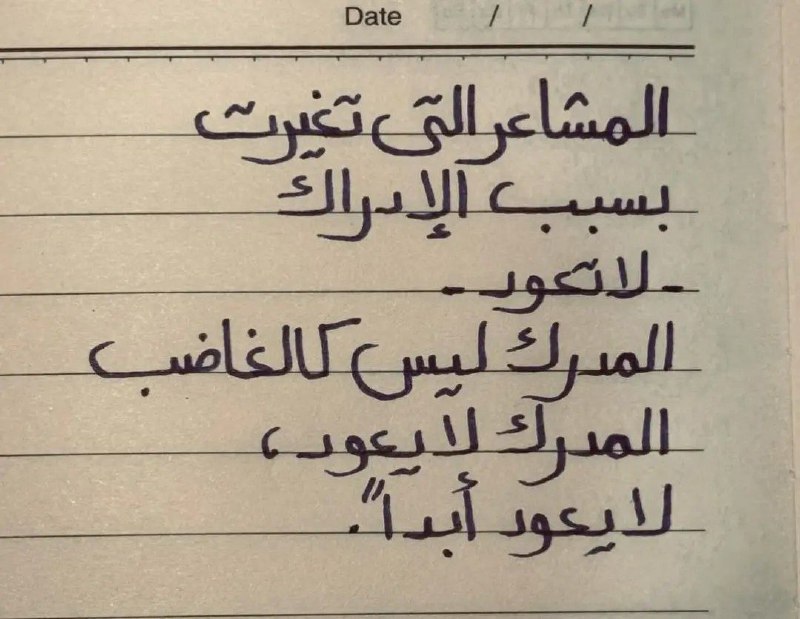 Date / /
المشاعر التي تغيرت
بسبب الإدراك
- لا تعود -
المدرك ليس كالغاضب
المدرك لا يعود ،
لا يعود أبداً .